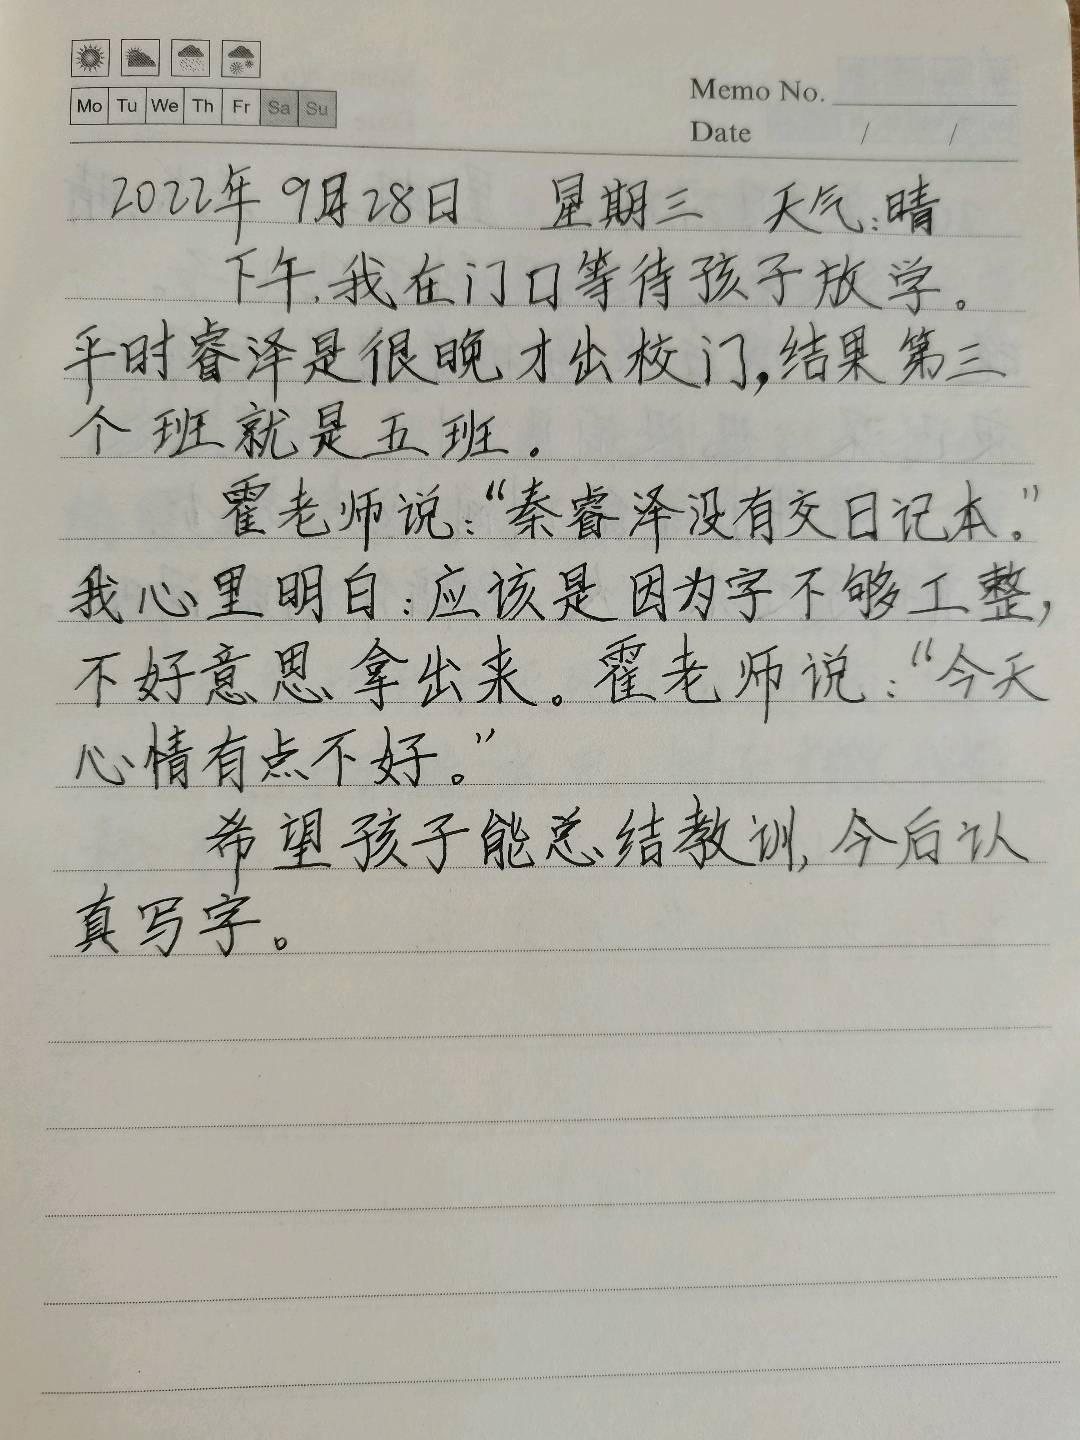 Mo Tu We Th Fr Sa Su
Memo No.
Date / /
2022年9月28日 星期三 天气:晴
下午,我在门口等待孩子放学。
平时睿泽是很晚才出校门,结果第三
个班就是五班。
霍老师说:“秦睿泽没有交日记本。”
我心里明白:应该是因为字不够工整,
不好意思拿出来。霍老师说:“今天
心情有点不好。”
希望孩子能总结教训,今后认
真写字。